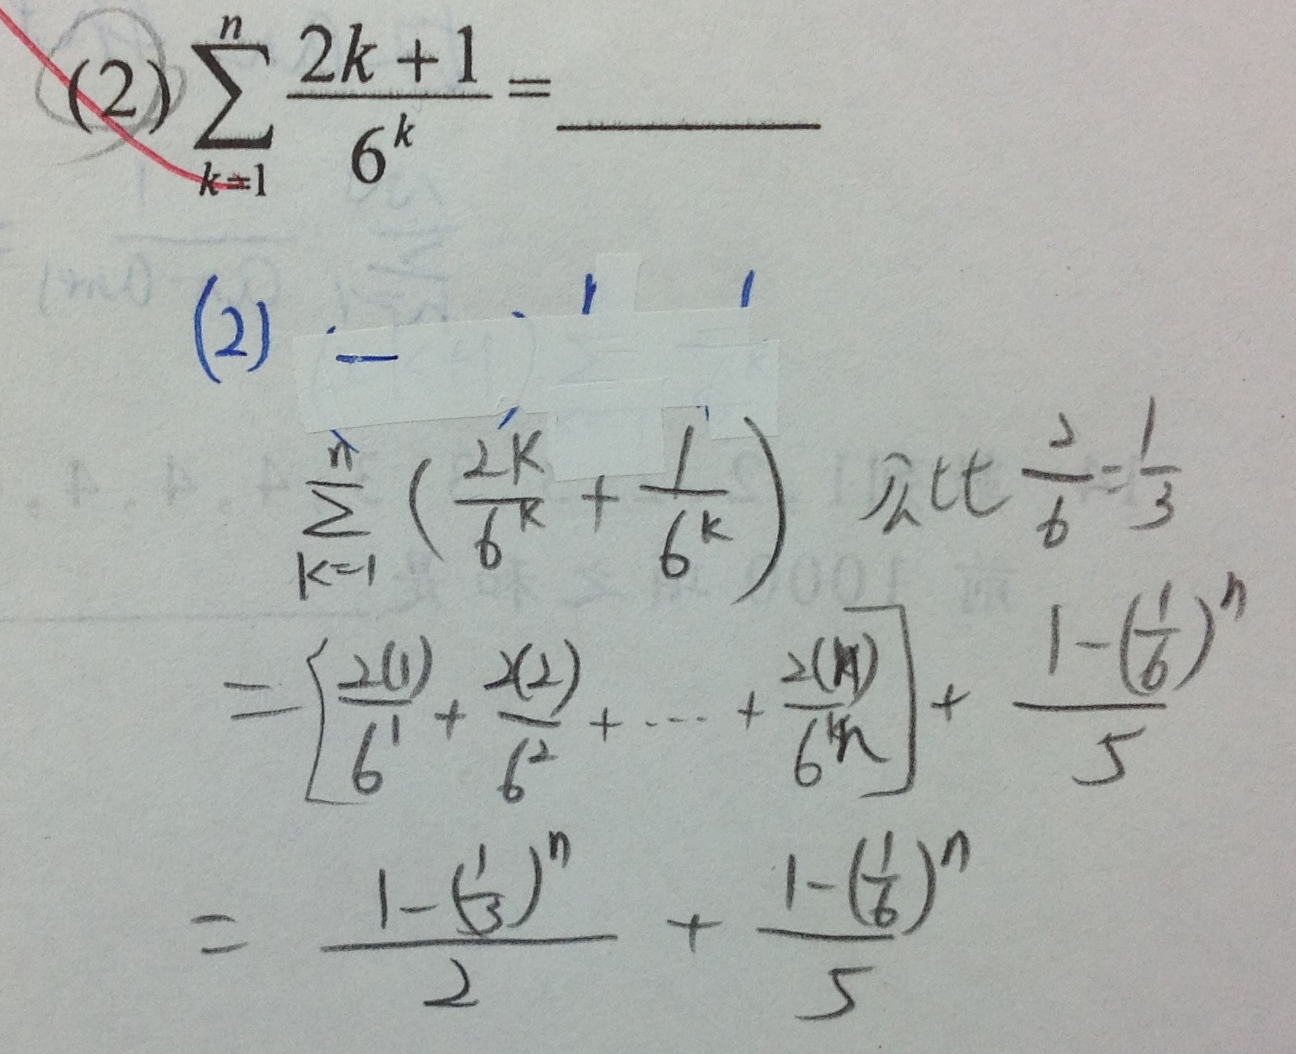 (2) \sum_{k=1}^{n} \frac{2k+1}{6^k} = ______
(2)
\sum_{k=1}^{n} ( \frac{2k}{6^k} + \frac{1}{6^k} ) 公比 \frac{2}{6} = \frac{1}{3}
= [ \frac{2(1)}{6^1} + \frac{2(2)}{6^2} + ---- + \frac{2(n)}{6^n} ] + \frac{1-(\frac{1}{6})^n}{5}
= \frac{1-(\frac{1}{3})^n}{2} + \frac{1-(\frac{1}{6})^n}{5}